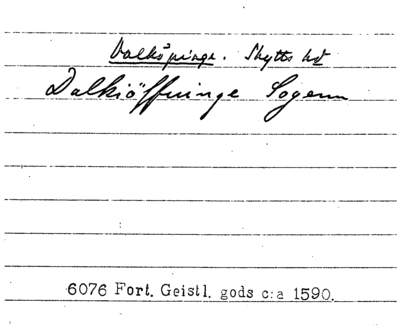 Dalköpinge. Skytts hd
Dalkiöffuinge Sogenn
6076 Fort. Geistl. gods c:a 1590.